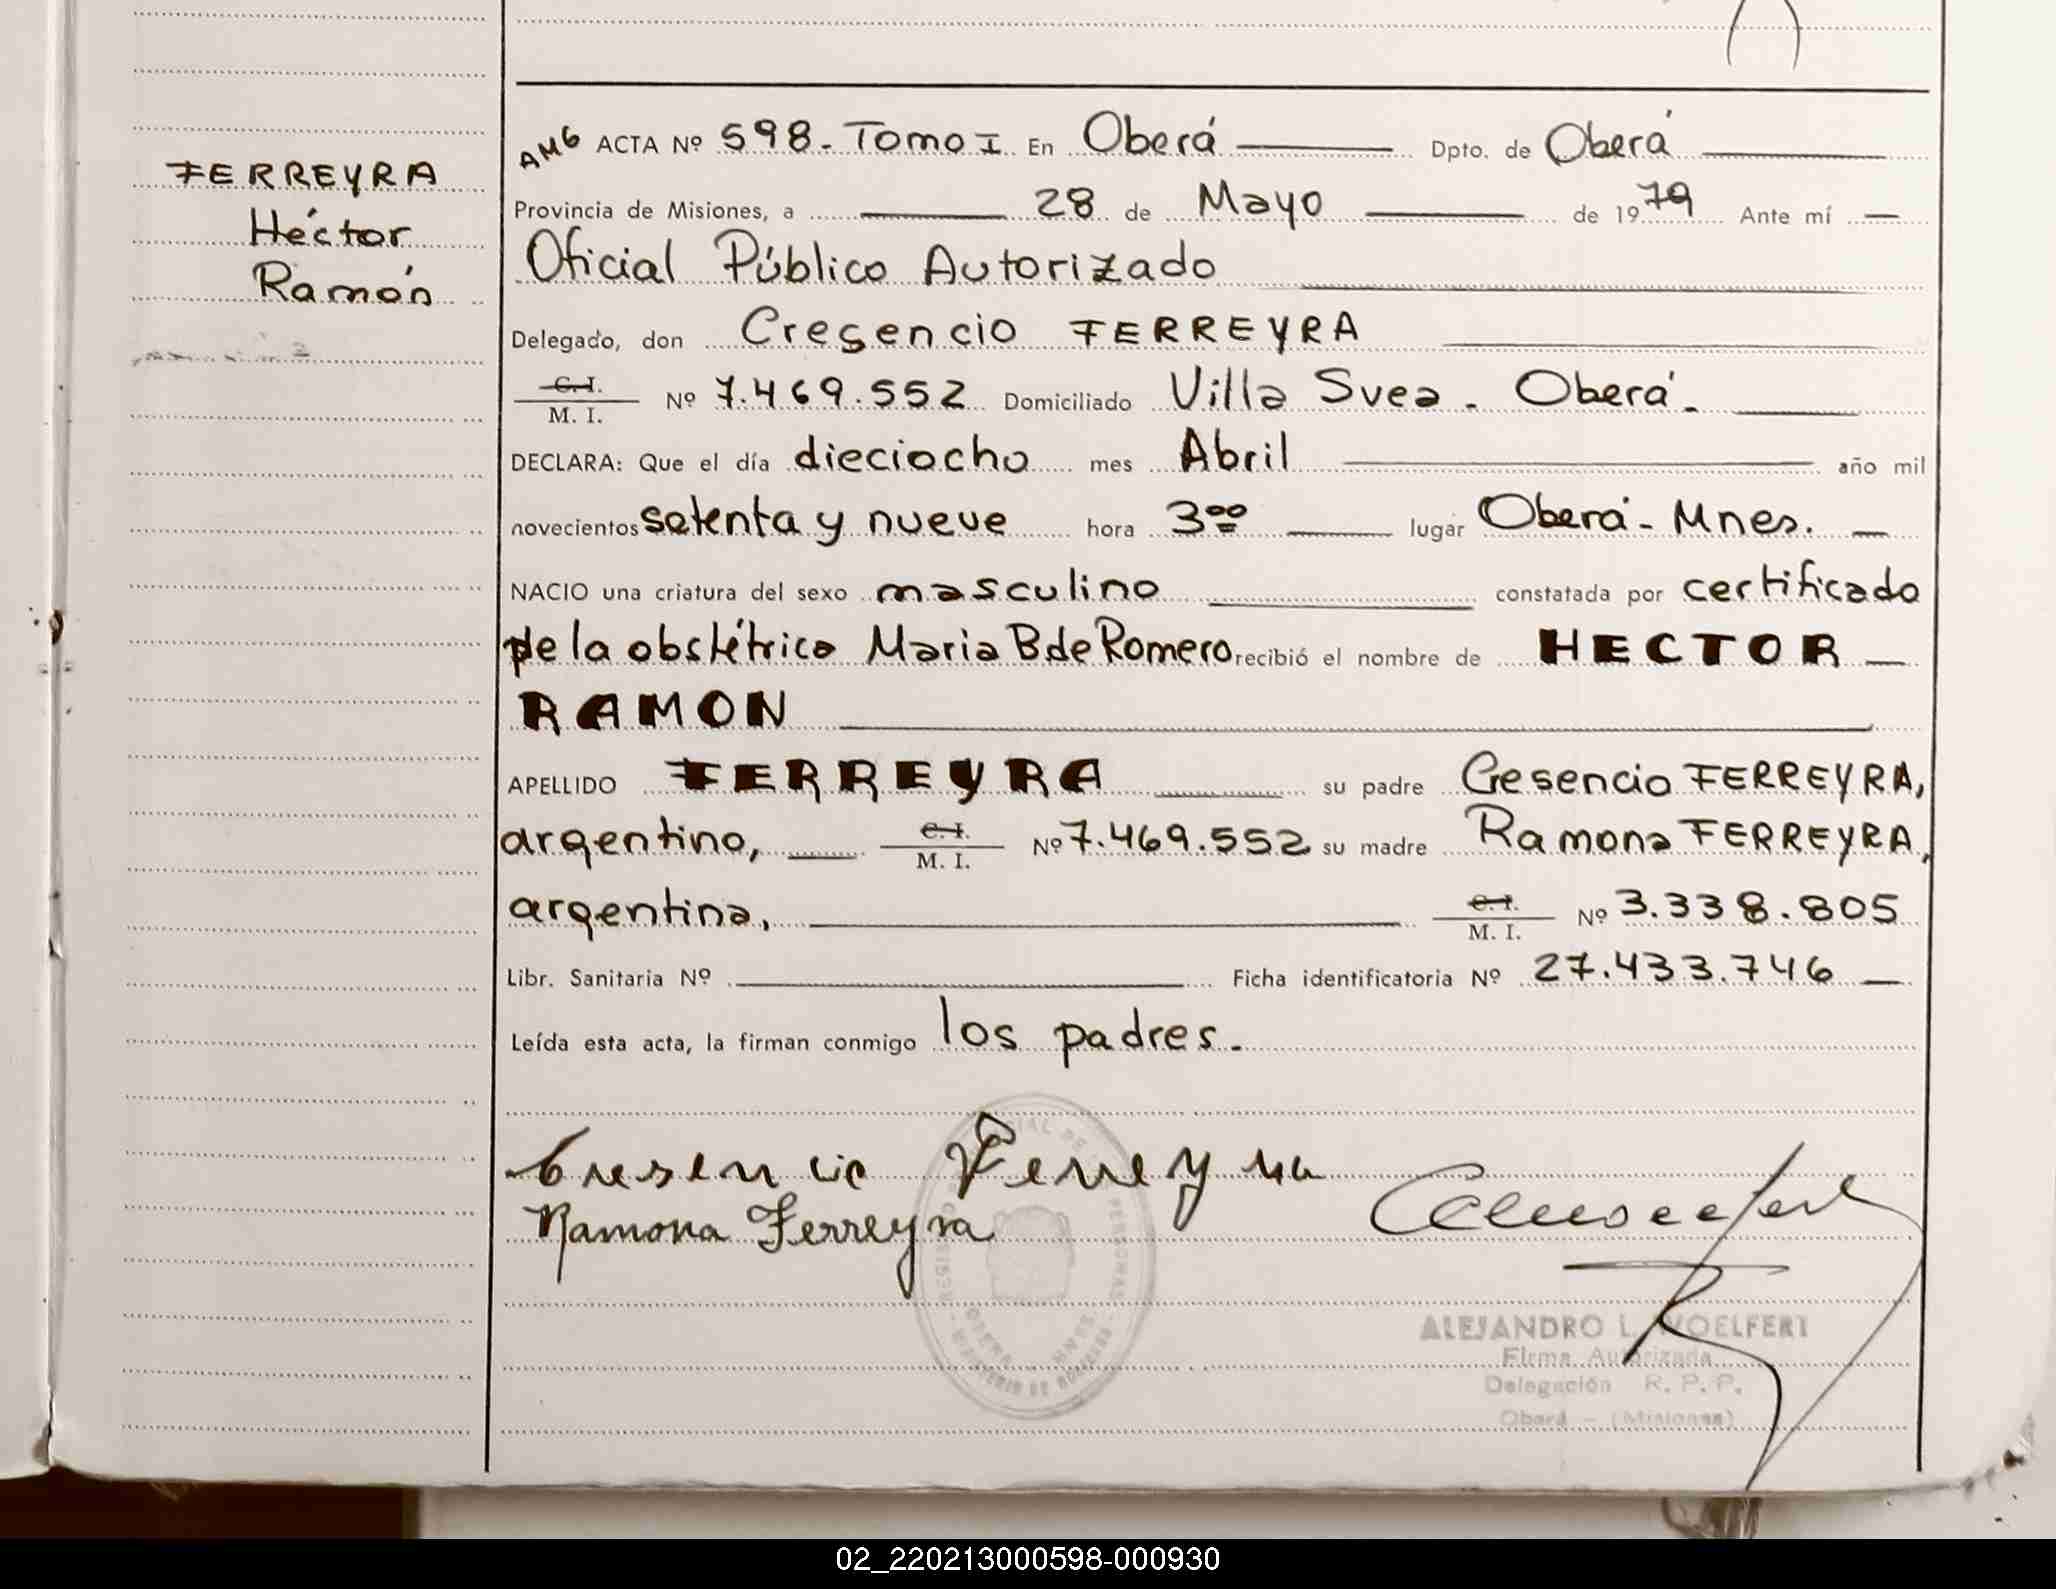 FERREYRA
Héctor
Ramón
AMG ACTA Nº 598-Tomo I En Oberá Dpto. de Oberá
Provincia de Misiones, a 28 de Mayo de 1979 Ante mí
Oficial Público Autorizado
Delegado, don Cresencio FERREYRA
C.I. M.I. Nº 7.469.552 Domiciliado Villa Svea - Oberá -
DECLARA: Que el día dieciocho mes Abril año mil
novecientos setenta y nueve hora 3 00 lugar Oberá - Mnes.
NACIO una criatura del sexo masculino constatada por certificado
de la obstétrica Maria B de Romero recibió el nombre de HECTOR
RAMON
APELLIDO FERREYRA su padre Cresencio FERREYRA,
argentino, C.I. M.I. Nº 7.469.552 su madre Ramona FERREYRA,
argentina, C.I. M.I. Nº 3.338.805
Libr. Sanitaria Nº Ficha identificatoria Nº 27.433.746
Leída esta acta, la firman conmigo los padres.
Cresencio Ferreyra
Ramona Ferreyra
ALEJANDRO L. WOELFERT
Firma Autorizada
Delegación R. P. P.
Oberá - (Misiones)
02_220213000598-000930